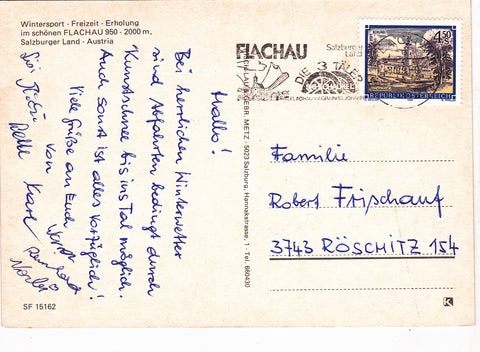 Wintersport - Freizeit - Erholung
im schönen FLACHAU 950 - 2000 m,
Salzburger Land - Austria
Hallo!
Bei herrlichem Winterwetter
sind Abfahrten bedingt durch
Kunstschnee bis ins Tal möglich.
Auch sonst ist alles vorzüglich!
Viele Grüße an Euch
von
Karl
SF 15162
GEBR. METZ · 5023 Salzburg, Hannakstrasse, 1 - Tel. 660430
FLACHAU
Salzburger
Land
DIE 3 TÄLER
4.50
REPUBLIK ÖSTERREICH
Familie
Robert Frischauf
3743 RÖSCHITZ 154
K